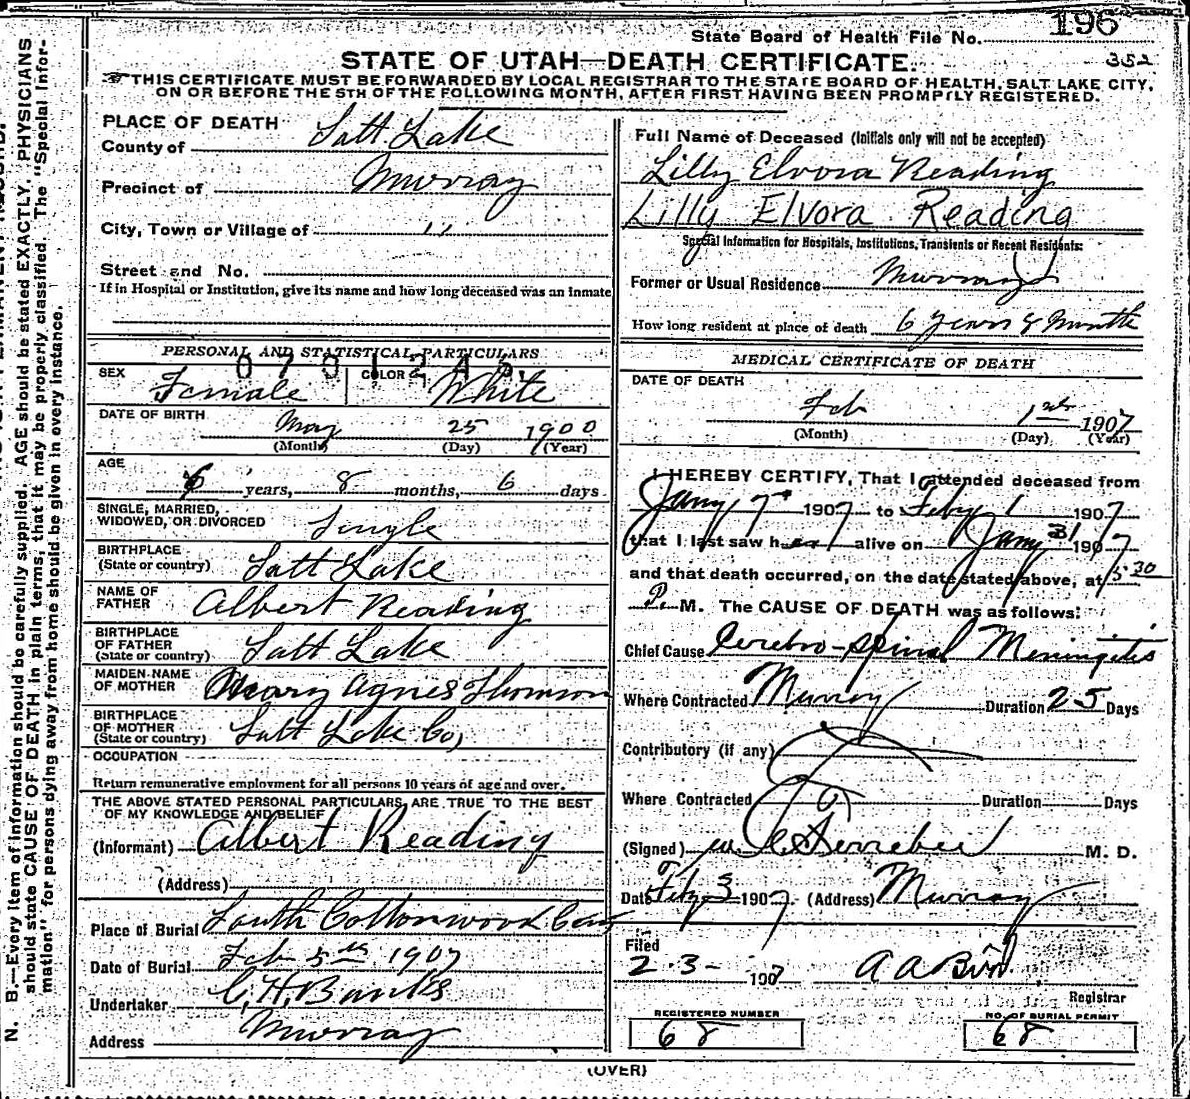 196
State Board of Health File No.
352
STATE OF UTAH—DEATH CERTIFICATE.
THIS CERTIFICATE MUST BE FORWARDED BY LOCAL REGISTRAR TO THE STATE BOARD OF HEALTH, SALT LAKE CITY,
ON OR BEFORE THE 5TH OF THE FOLLOWING MONTH, AFTER FIRST HAVING BEEN PROMPTLY REGISTERED.
PLACE OF DEATH
County of Salt Lake
Precinct of Murray
City, Town or Village of "
Street and No.
If in Hospital or Institution, give its name and how long deceased was an inmate
PERSONAL AND STATISTICAL PARTICULARS
SEX Female COLOR White
DATE OF BIRTH May 25 1900
(Month) (Day) (Year)
AGE
6 years, 8 months, 6 days
SINGLE, MARRIED,
WIDOWED, OR DIVORCED Single
BIRTHPLACE
(State or country) Salt Lake
NAME OF
FATHER Albert Reading
BIRTHPLACE
OF FATHER
(State or country) Salt Lake
MAIDEN NAME
OF MOTHER Mary Agnes Thomson
BIRTHPLACE
OF MOTHER
(State or country) Salt Lake Co,
OCCUPATION
Return remunerative employment for all persons 10 years of age and over.
THE ABOVE STATED PERSONAL PARTICULARS, ARE TRUE TO THE BEST
OF MY KNOWLEDGE AND BELIEF
(Informant) Albert Reading
(Address)
Place of Burial South Cottonwood Cem
Date of Burial Feb 5th 1907
Undertaker C. H. Banks
Address Murray
Full Name of Deceased (Initials only will not be accepted)
Lilly Elvora Reading
Lilly Elvora Reading
Special Information for Hospitals, Institutions, Transients or Recent Residents:
Former or Usual Residence Murray
How long resident at place of death 6 years 8 Month
MEDICAL CERTIFICATE OF DEATH
DATE OF DEATH
Feb 1st 1907
(Month) (Day) (Year)
I HEREBY CERTIFY, That I attended deceased from
Jany 7th 1907 to Feby 1 1907
that I last saw her alive on Jany 31 1907
and that death occurred, on the date stated above, at 5 30
P. M. The CAUSE OF DEATH was as follows:
Chief Cause Cerebro-spinal Meningitis
Where Contracted Murray Duration 25 Days
Contributory (if any)
Where Contracted Duration Days
(Signed) M. D.
Date Feby 3 1907. (Address) Murray
Filed
2-3- 1907 A A Bird
Registrar
REGISTERED NUMBER
68
NO. OF BURIAL PERMIT
68
(OVER)
N. B.—Every item of information should be carefully supplied. AGE should be stated EXACTLY. PHYSICIANS
should state CAUSE OF DEATH in plain terms, that it may be properly classified. The "Special Infor-
mation" for persons dying away from home should be given in every instance.